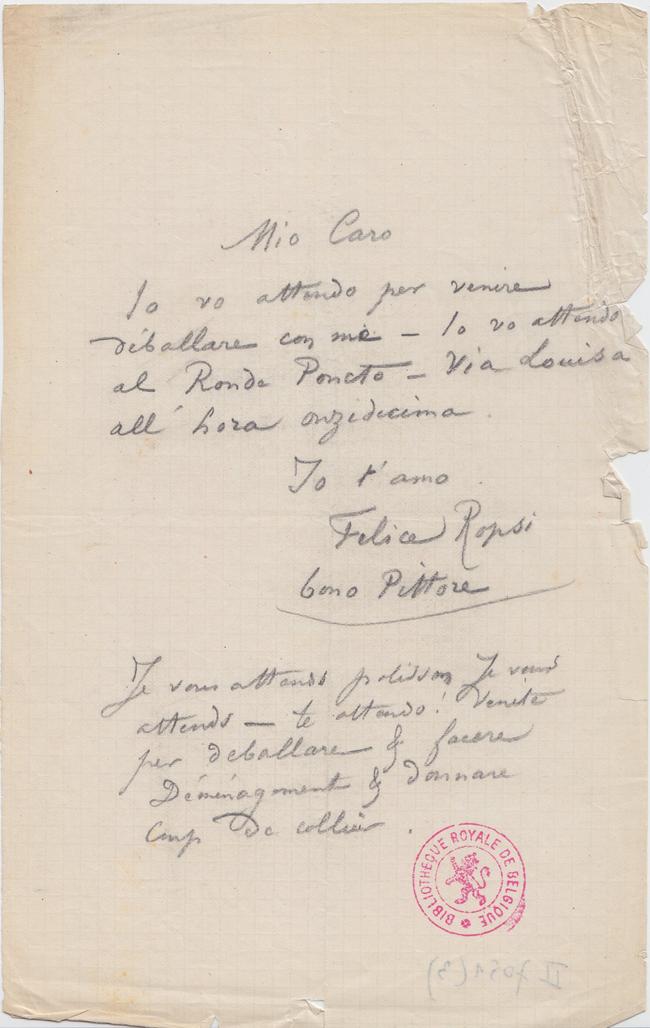 Mio Caro
Io vo attendo per venire
déballare con me – Io vo attendo
al Ronde Poncto – Via Louisa
all' hora onzidecima.
Io t'amo.
Felice Ropsi
bono Pittore
Je vous attends polisson Je vous
attends – te attendo! Venite
per deballare & facere
Déménagement & donnare
Coup de collier.
BIBLIOTHEQUE ROYALE DE BELGIQUE
II 7051 (3)